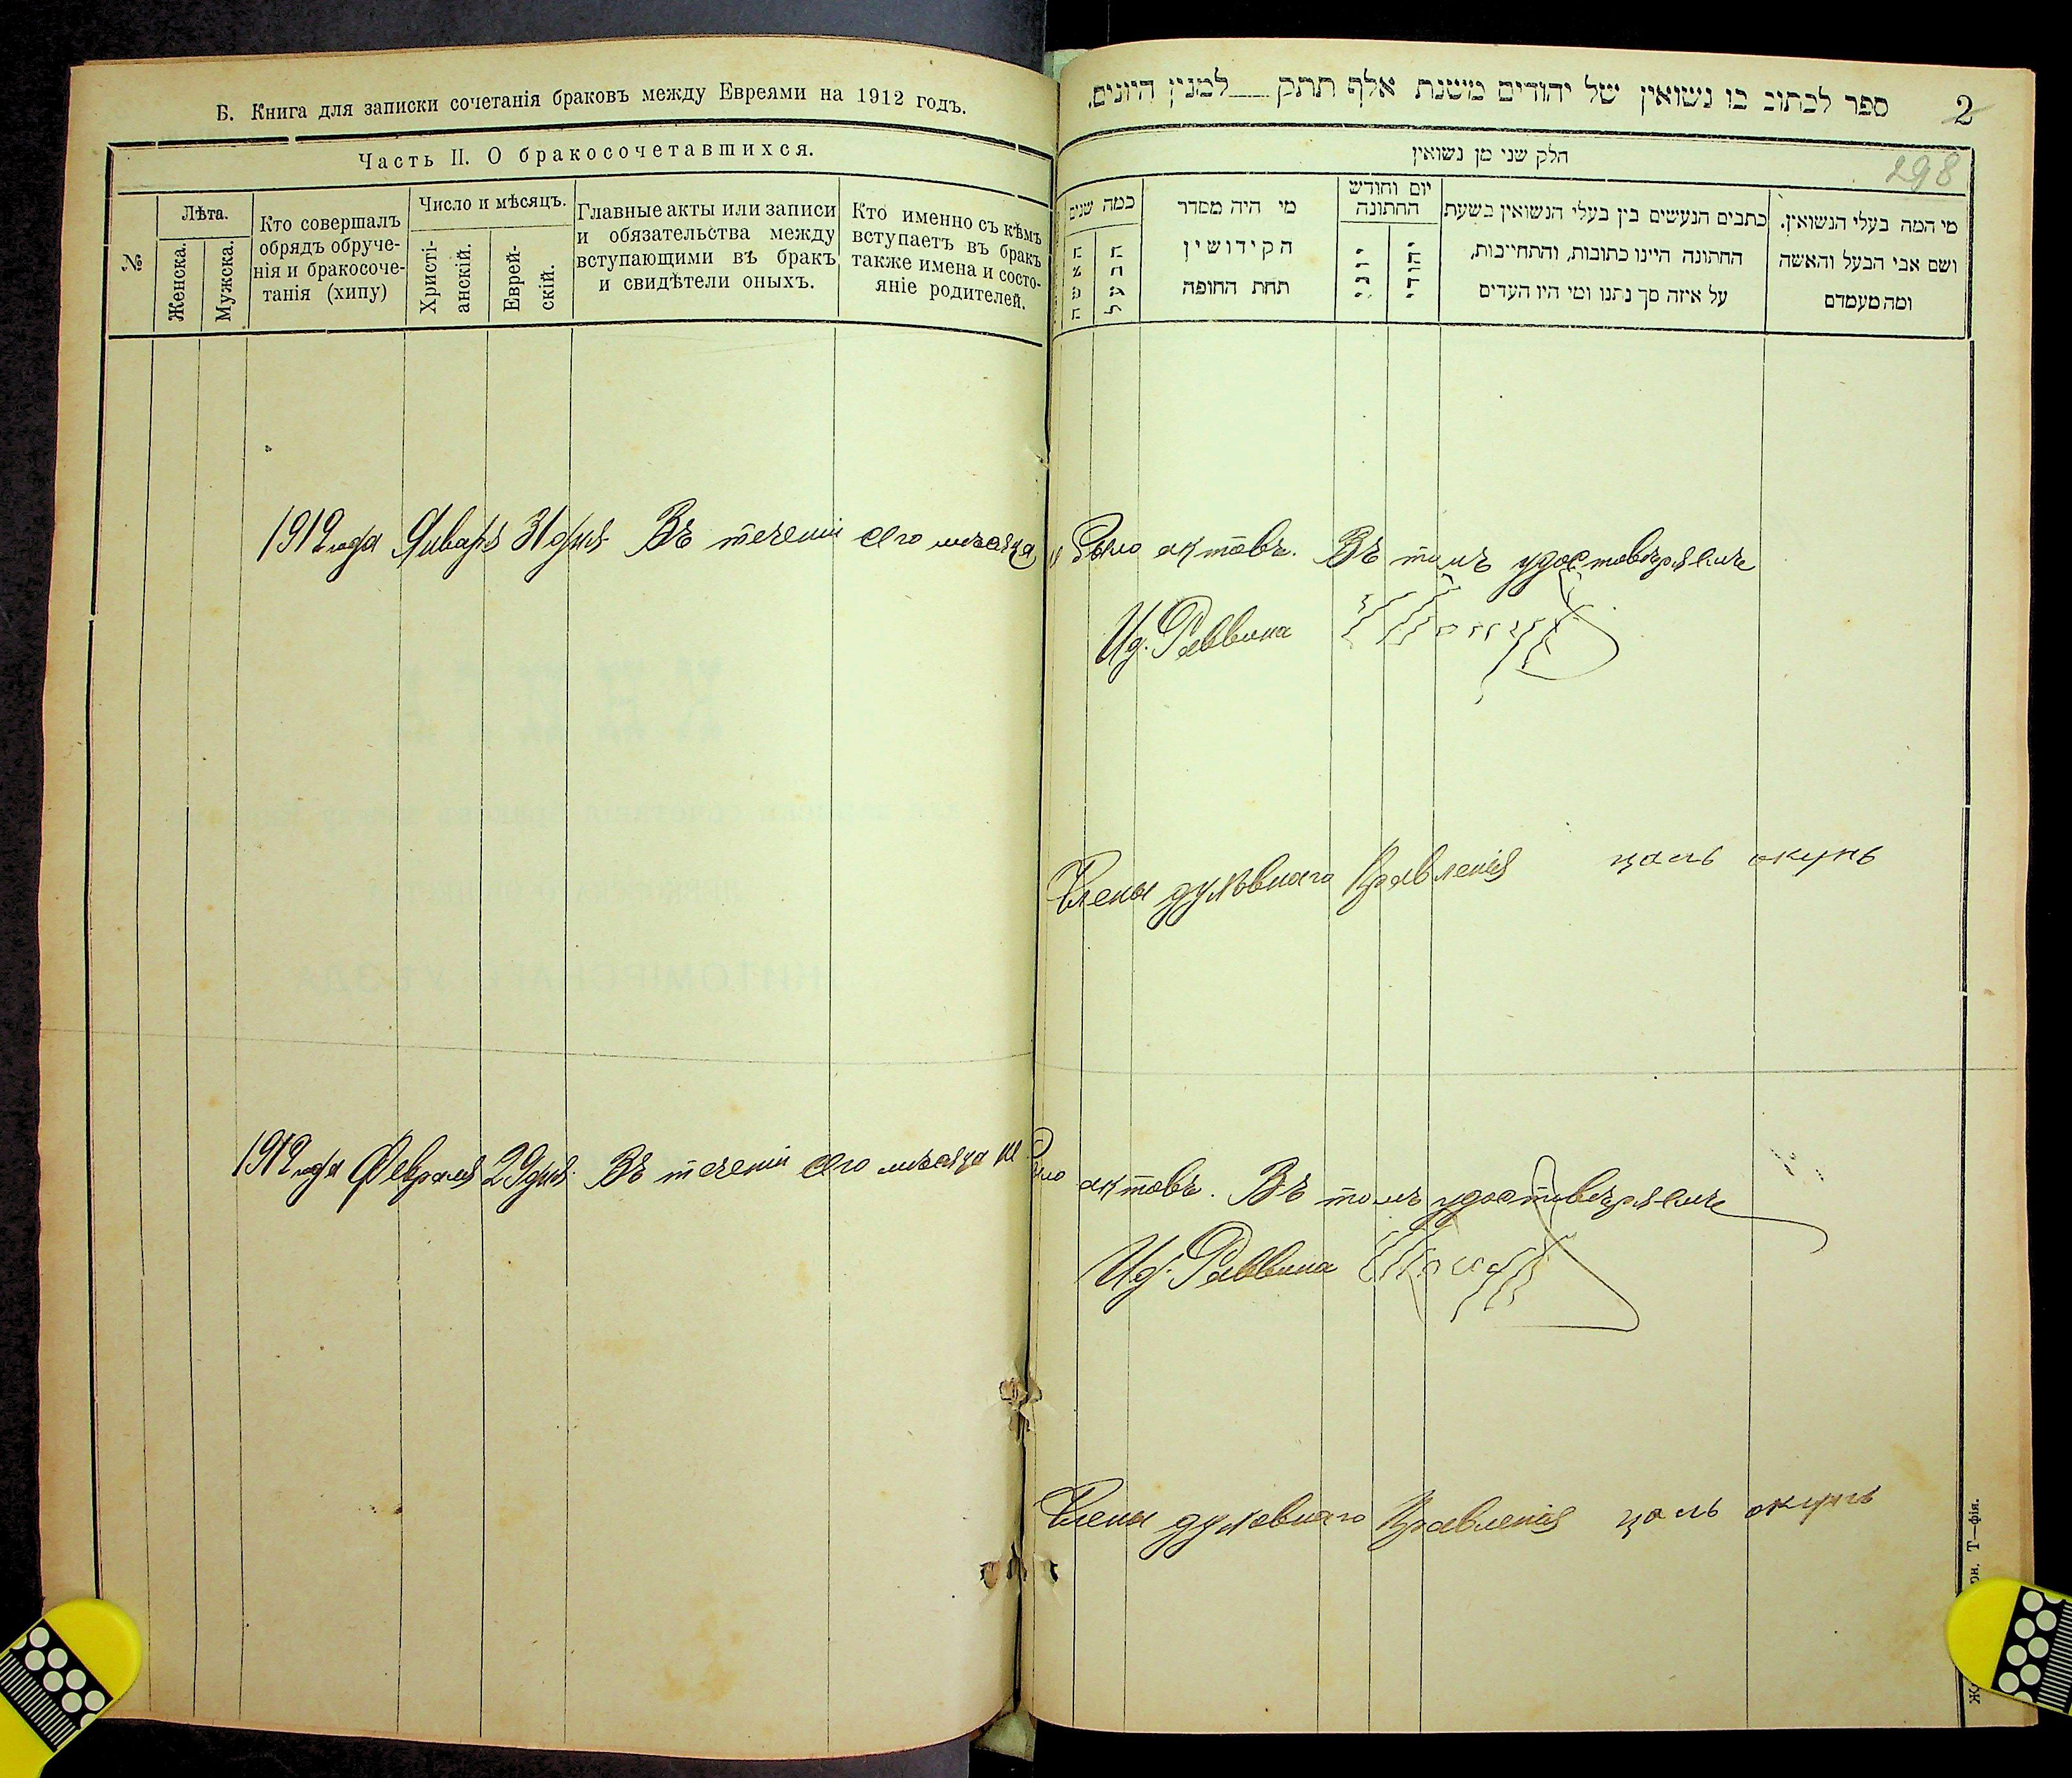 Б. Книга для записки сочетанія браковъ между Евреями на 1912 годъ.
Часть II. О бракосочетавшихся.
№
Лѣта.
Женска.
Мужска.
Кто совершалъ
обрядъ обруче-
нія и бракосоче-
танія (хипу)
Число и мѣсяцъ.
Христі-
анскій.
Еврей-
скій.
Главные акты или записи
и обязательства между
вступающими въ бракъ
и свидѣтели оныхъ.
Кто именно съ кѣмъ
вступаетъ въ бракъ
также имена и состо-
яніе родителей.
ספר לכתוב בו נשואין של יהודים משנת אלף תתק__למנין היונים.
2
298
חלק שני מן נשואין
מי המה בעלי הנשואין.
ושם אבי הבעל והאשה
ומה מעמדם
כתבים הנעשים בין בעלי הנשואין בשעת
החתונה היינו כתובות, והתחייבות,
על איזה סך נתנו ומי היו העדים
יום וחודש
החתונה
יהודי
יוני
מי היה מסדר
הקידושין
תחת החופה
כמה שנים
הבעל
האשה
1912 года Января 31 дня. Въ теченіи сего мѣсяца не было актовъ. Въ томъ удостовѣряемъ
И д. Раввина
Члены духовнаго Правленія цаль окунь
1912 года Февраля 29 дня. Въ теченіи сего мѣсяца не было актовъ. Въ томъ удостовѣряемъ
И д. Раввина
Члены духовнаго Правленія цаль окунь
Т—фія.